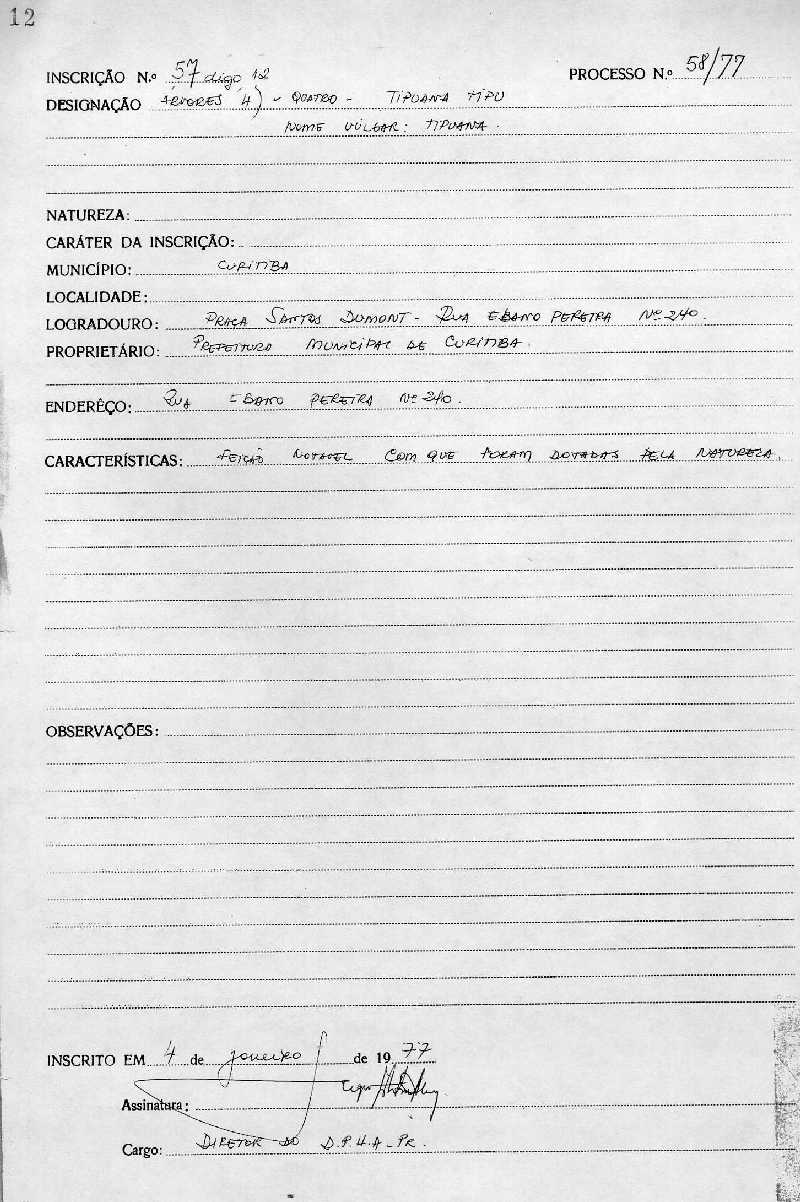 12
INSCRIÇÃO N.º 57 digo 12 PROCESSO N.º 58/77
DESIGNAÇÃO ÁRVORES (4) - QUATRO - TIPUANA TIPU
NOME VULGAR: TIPUANA.
NATUREZA:
CARÁTER DA INSCRIÇÃO:
MUNICÍPIO: CURITIBA
LOCALIDADE:
LOGRADOURO: PRAÇA SANTOS DUMONT - RUA EBANO PEREIRA Nº 240.
PROPRIETÁRIO: PREFEITURA MUNICIPAL DE CURITIBA.
ENDERÊÇO: RUA EBANO PEREIRA Nº 240.
CARACTERÍSTICAS: FEIÇÃO NOTAVEL COM QUE FORAM DOTADAS PELA NATUREZA.
OBSERVAÇÕES:
INSCRITO EM 4 de janeiro de 1977
Assinatura:
Cargo: DIRETOR DO D.P.H.A - PR.